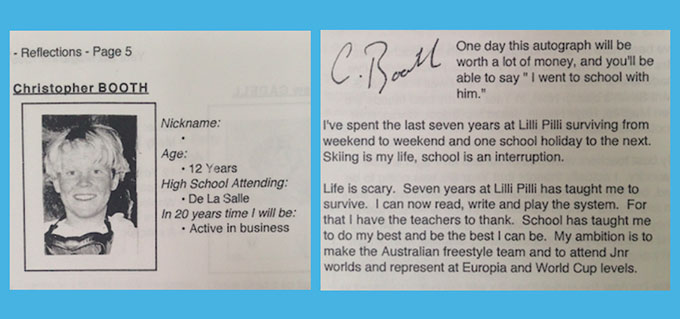 - Reflections - Page 5
Christopher BOOTH
Nickname:
•
Age:
• 12 Years
High School Attending:
• De La Salle
In 20 years time I will be:
• Active in business
C. Booth
One day this autograph will be
worth a lot of money, and you'll be
able to say " I went to school with
him."
I've spent the last seven years at Lilli Pilli surviving from
weekend to weekend and one school holiday to the next.
Skiing is my life, school is an interruption.
Life is scary. Seven years at Lilli Pilli has taught me to
survive. I can now read, write and play the system. For
that I have the teachers to thank. School has taught me
to do my best and be the best I can be. My ambition is to
make the Australian freestyle team and to attend Jnr
worlds and represent at Europia and World Cup levels.